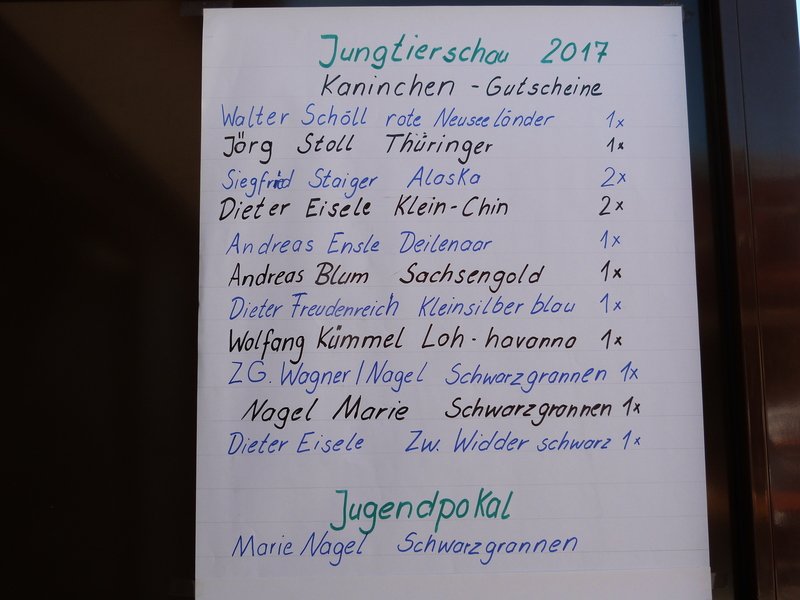 Jungtierschau 2017
Kaninchen - Gutscheine
Walter Schöll rote Neuseeländer 1x
Jörg Stoll Thüringer 1x
Siegfried Staiger Alaska 2x
Dieter Eisele Klein-Chin 2x
Andreas Ensle Deilenaar 1x
Andreas Blum Sachsengold 1x
Dieter Freudenreich Kleinsilber blau 1x
Wolfang Kümmel Loh-havanna 1x
ZG. Wagner/Nagel Schwarzgrannen 1x
Nagel Marie Schwarzgrannen 1x
Dieter Eisele Zw. Widder schwarz 1x
Jugendpokal
Marie Nagel Schwarzgrannen